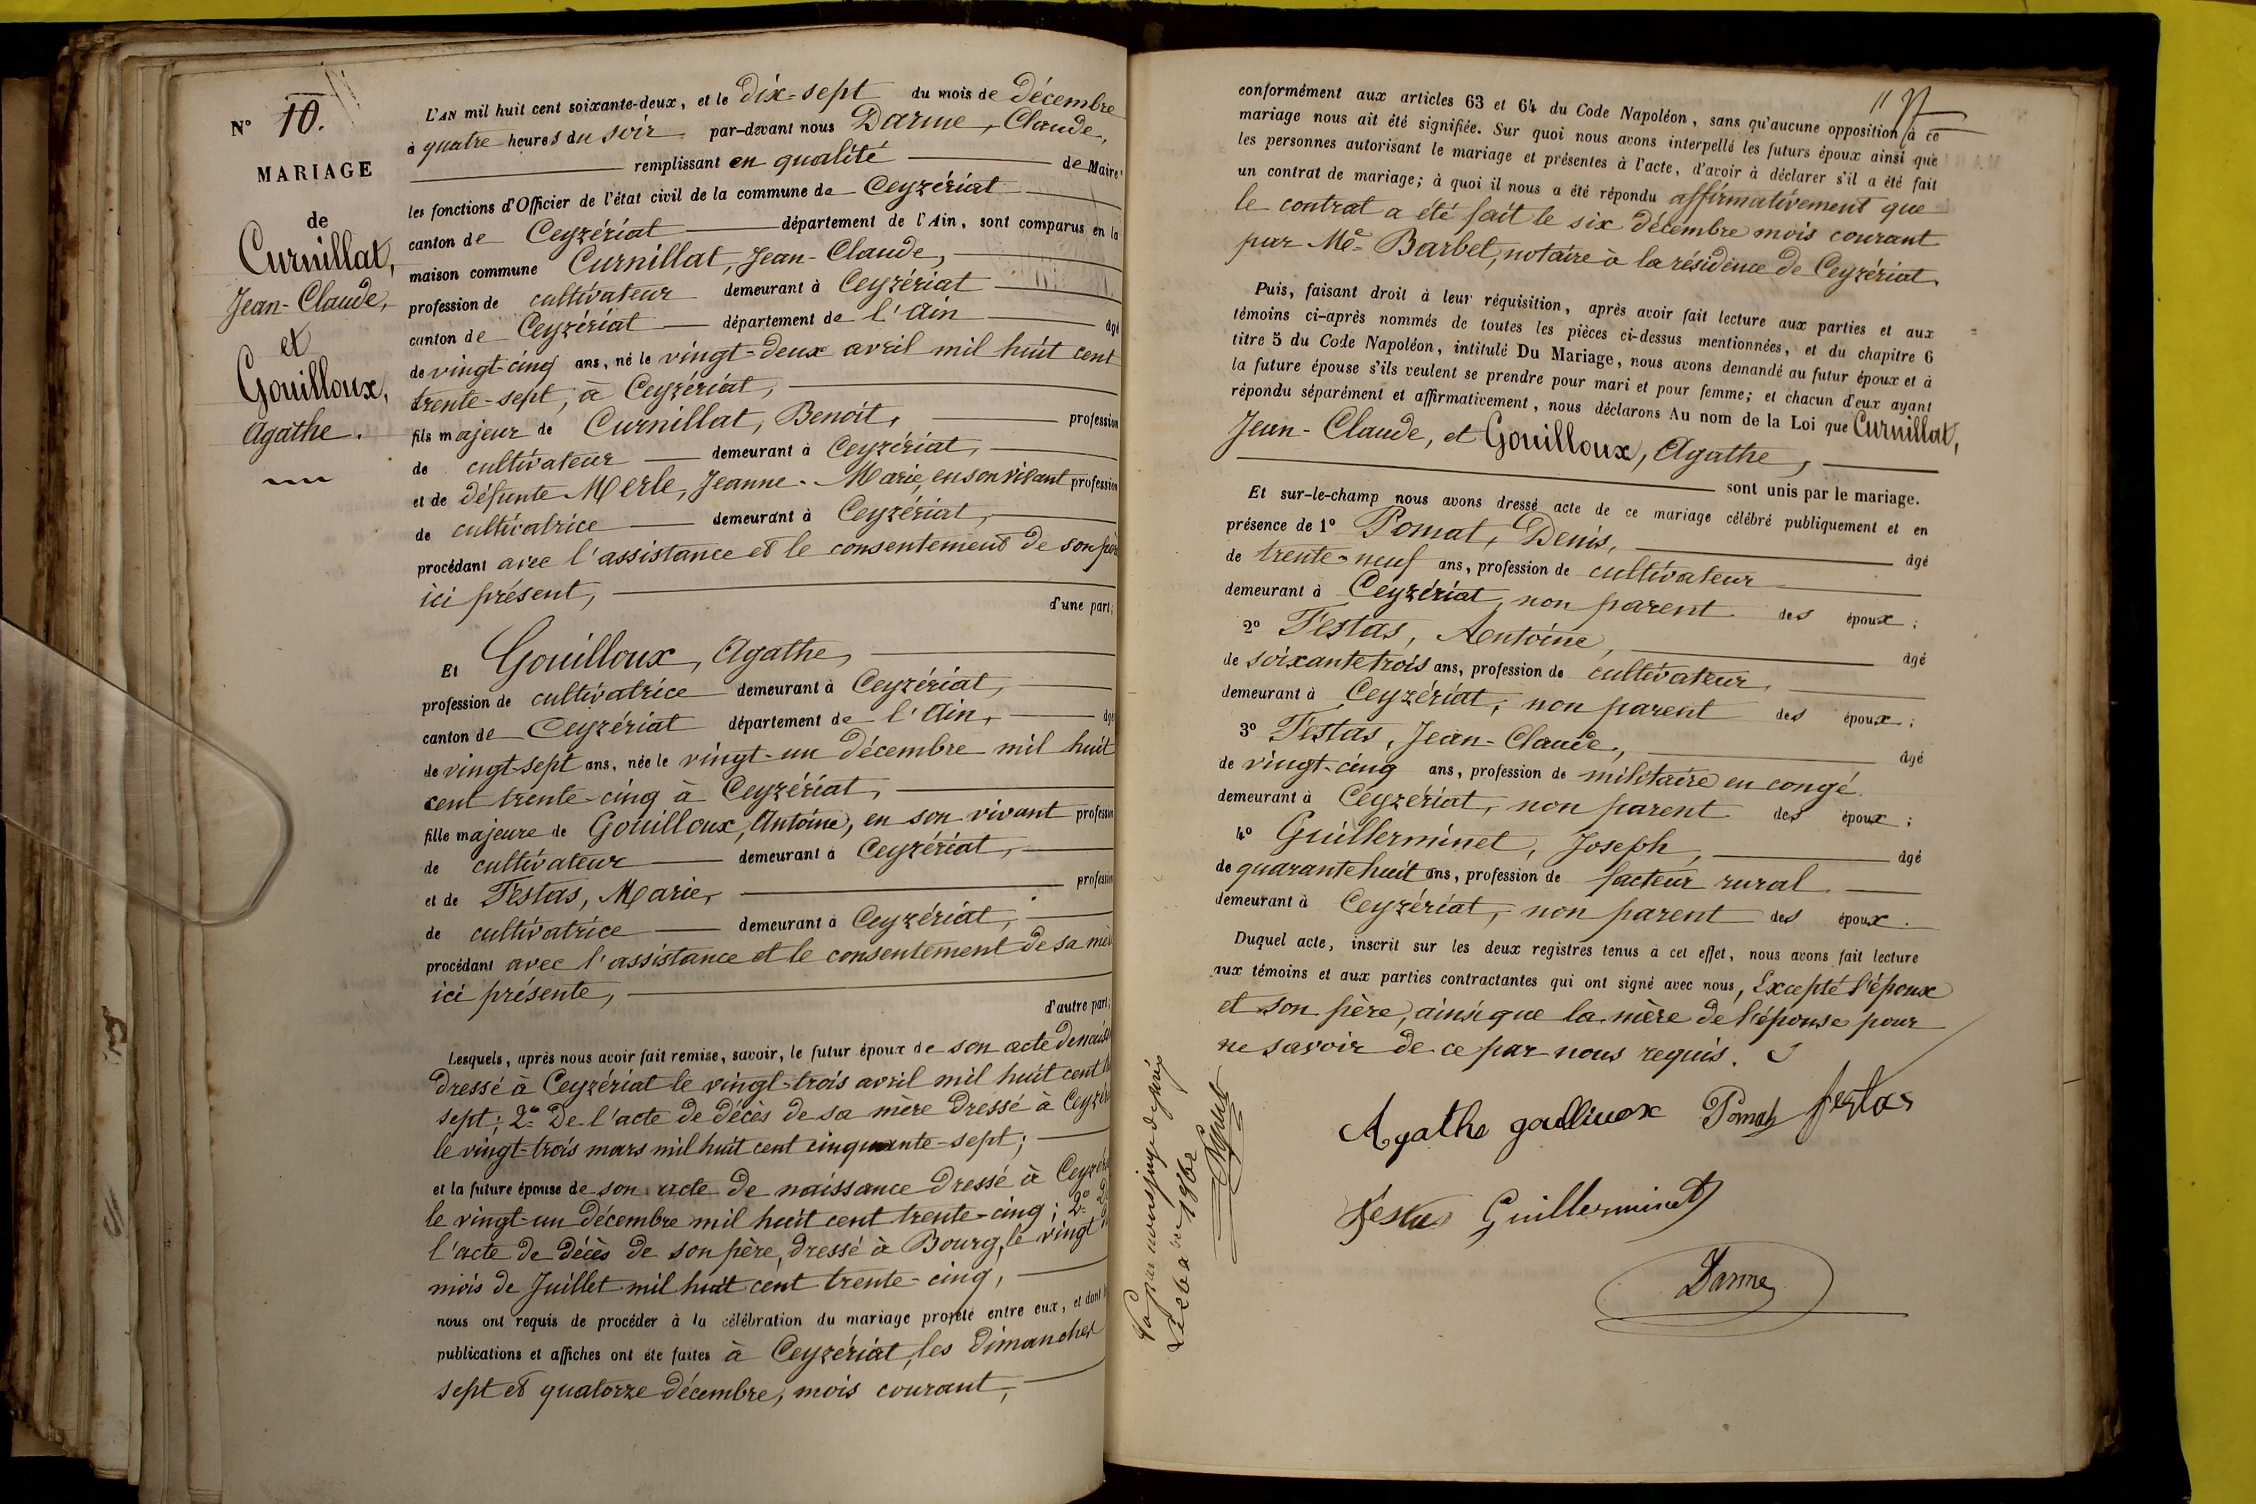 N° 10.
MARIAGE
de
Curnillat,
Jean-Claude,
et
Gouilloux,
Agathe.
L'AN mil huit cent soixante-deux, et le dix-sept du mois de décembre
à quatre heures du soir par-devant nous Darme, Claude,
remplissant en qualité de Maire
les fonctions d'Officier de l'état civil de la commune de Ceyzériat
canton de Ceyzériat département de l'Ain, sont comparus en la
maison commune Curnillat, Jean-Claude,
profession de cultivateur demeurant à Ceyzériat
canton de Ceyzériat département de l'Ain âgé
de vingt-cinq ans, né le vingt-deux avril mil huit cent
trente-sept, à Ceyzériat,
fils majeur de Curnillat, Benoit, profession
de cultivateur demeurant à Ceyzériat,
et de défunte Merle, Jeanne-Marie, en son vivant profession
de cultivatrice demeurant à Ceyzériat,
procédant avec l'assistance et le consentement de son père
ici présent,
d'une part;
Et Gouilloux, Agathe,
profession de cultivatrice demeurant à Ceyzériat,
canton de Ceyzériat département de l'Ain, âgé
de vingt-sept ans, née le vingt-un décembre mil huit
cent trente-cinq à Ceyzériat,
fille majeure de Gouilloux, Antoine, en son vivant profession
de cultivateur demeurant à Ceyzériat,
et de Festas, Marie, profession
de cultivatrice demeurant à Ceyzériat,
procédant avec l'assistance et le consentement de sa mère
ici présente,
d'autre part;
Lesquels, après nous avoir fait remise, savoir, le futur époux de son acte de
dressé à Ceyzériat le vingt-trois avril mil huit cent
sept; 2° De l'acte de décès de sa mère dressé à
le vingt-trois mars mil huit cent cinquante-sept;
et la future épouse de son acte de naissance dressé à
le vingt-un décembre mil huit cent trente-cinq; 2°
l'acte de décès de son père, dressé à Bourg, le vingt
mois de Juillet mil huit cent trente-cinq,
nous ont requis de procéder à la célébration du mariage projeté entre eux, et dont
publications et affiches ont été faites à Ceyzériat, les dimanches
sept et quatorze décembre, mois courant,
conformément aux articles 63 et 64 du Code Napoléon, sans qu'aucune opposition à ce
mariage nous ait été signifiée. Sur quoi nous avons interpellé les futurs époux ainsi que
les personnes autorisant le mariage et présentes à l'acte, d'avoir à déclarer s'il a été fait
un contrat de mariage; à quoi il nous a été répondu affirmativement que
le contrat a été fait le six décembre mois courant
par Me Barbet, notaire à la résidence de Ceyzériat.
Puis, faisant droit à leur réquisition, après avoir fait lecture aux parties et aux
témoins ci-après nommés de toutes les pièces ci-dessus mentionnées, et du chapitre 6
titre 5 du Code Napoléon, intitulé Du Mariage, nous avons demandé au futur époux et à
la future épouse s'ils veulent se prendre pour mari et pour femme; et chacun d'eux ayant
répondu séparément et affirmativement, nous déclarons Au nom de la Loi que Curnillat,
Jean-Claude, et Gouilloux, Agathe,
sont unis par le mariage.
Et sur-le-champ nous avons dressé acte de ce mariage célébré publiquement et en
présence de 1° Pomat, Denis, âgé
de trente-neuf ans, profession de cultivateur
demeurant à Ceyzériat, non parent des époux;
2° Festas, Antoine, âgé
de soixante trois ans, profession de cultivateur,
demeurant à Ceyzériat, non parent des époux;
3° Festas, Jean-Claude, âgé
de vingt-cinq ans, profession de militaire en congé
demeurant à Ceyzériat, non parent des époux;
4° Guillerminet, Joseph, âgé
de quarante huit ans, profession de facteur rural
demeurant à Ceyzériat, non parent des époux.
Duquel acte, inscrit sur les deux registres tenus à cet effet, nous avons fait lecture
aux témoins et aux parties contractantes qui ont signé avec nous, Excepté l'époux
et son père, ainsi que la mère de l'épouse pour
ne savoir de ce par nous requis.
Agathe gouilloux Pomat festas
festas Guillerminet
Darme